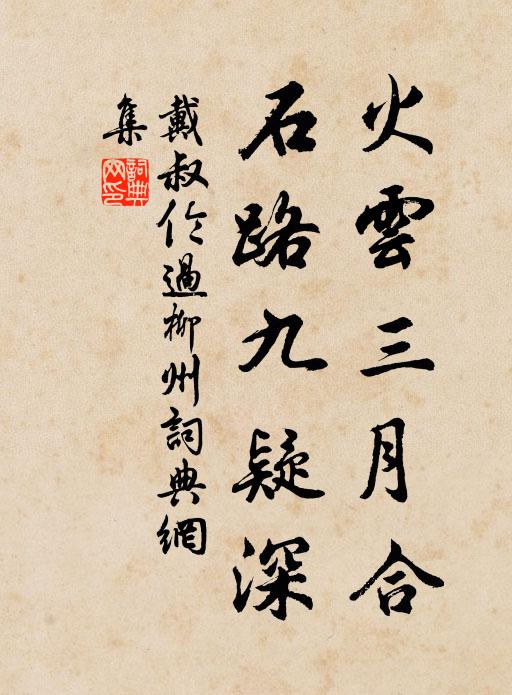 火雲三月合
石路九疑深
戴叔伦過柳州詞典網
集
詞典
网印